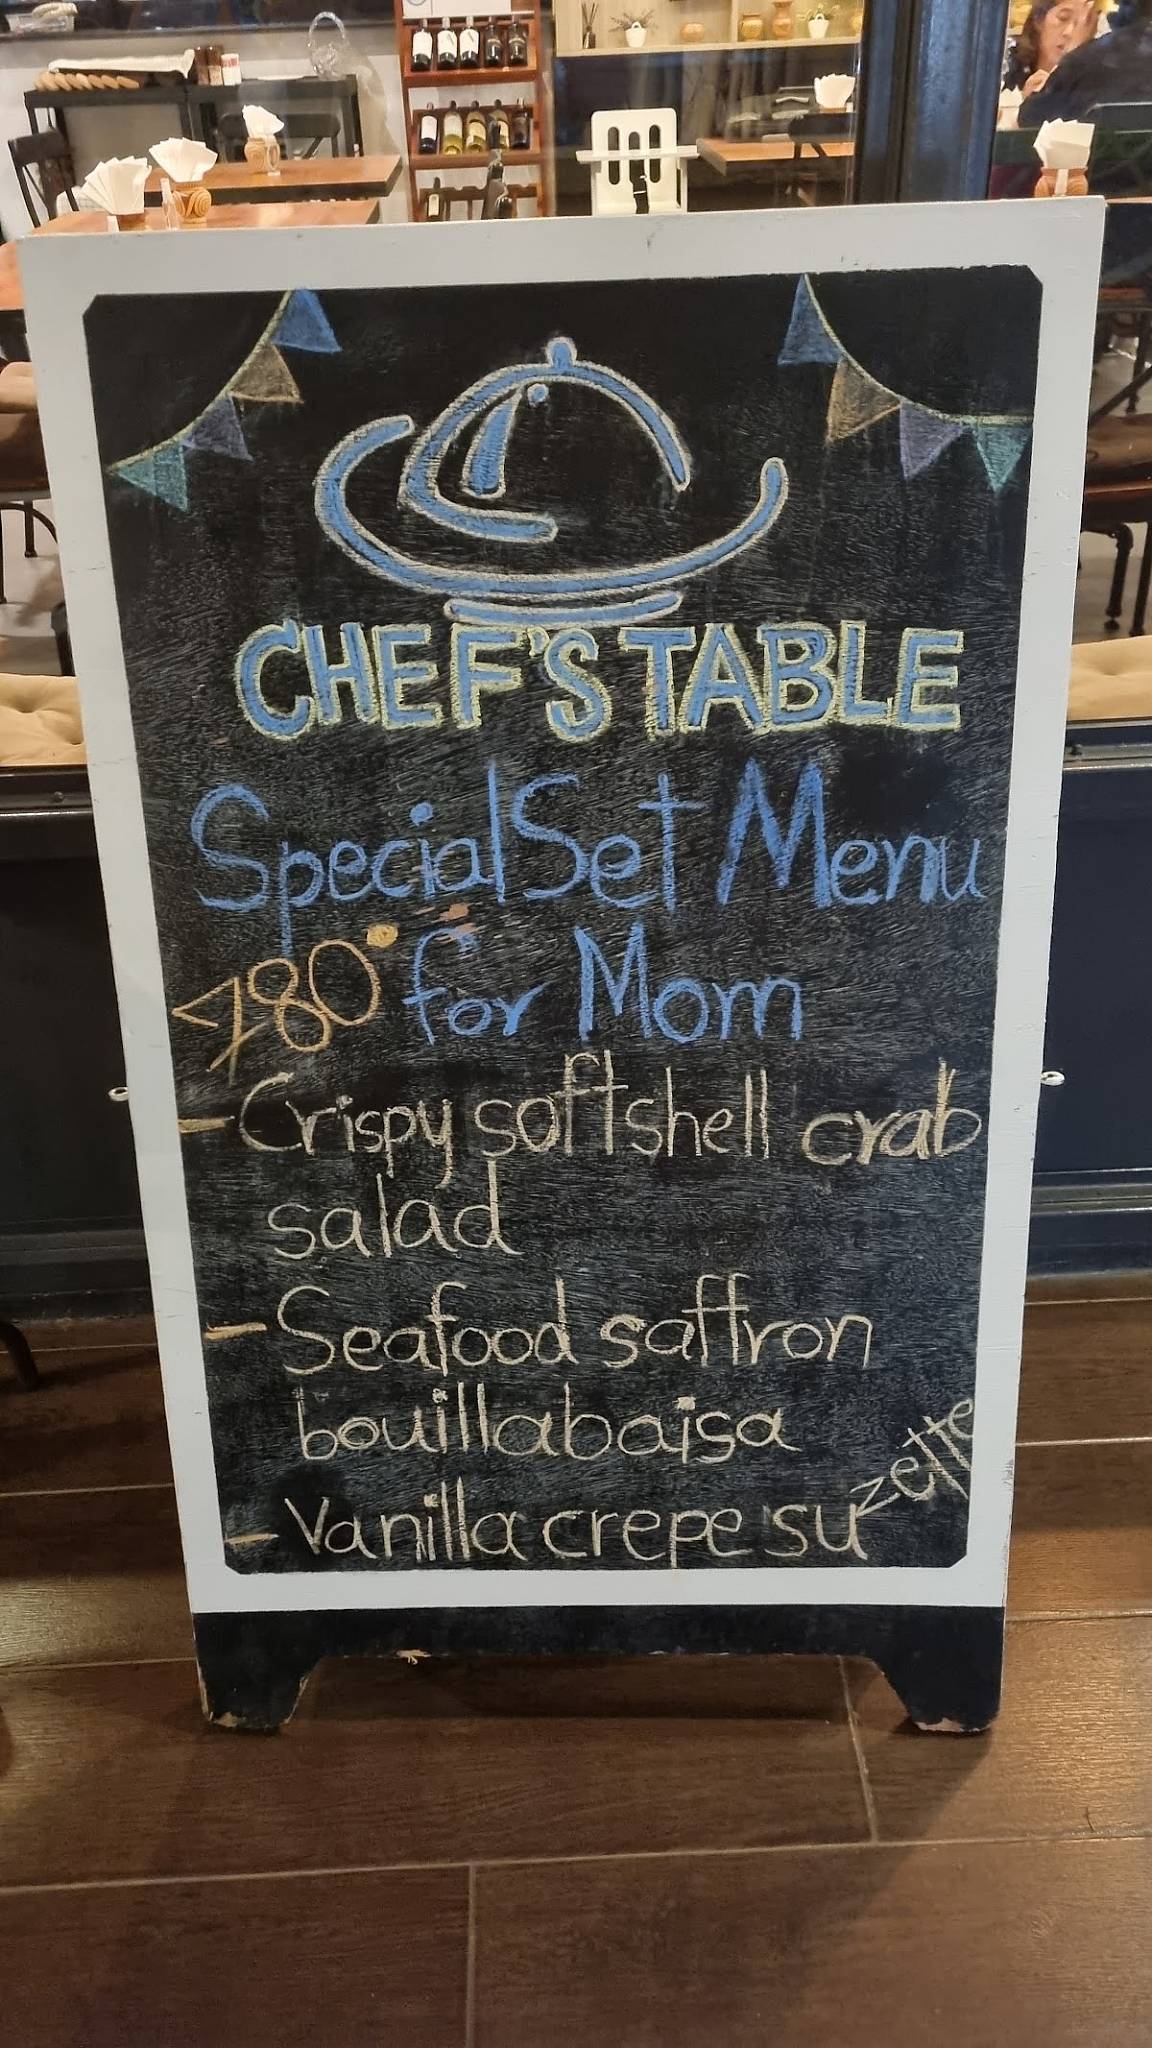 CHEF'S TABLE
Special Set Menu
780 for Mom
- Crispy soft shell crab
salad
- Seafood saffron
bouillabaisa
- Vanilla crepe suzette